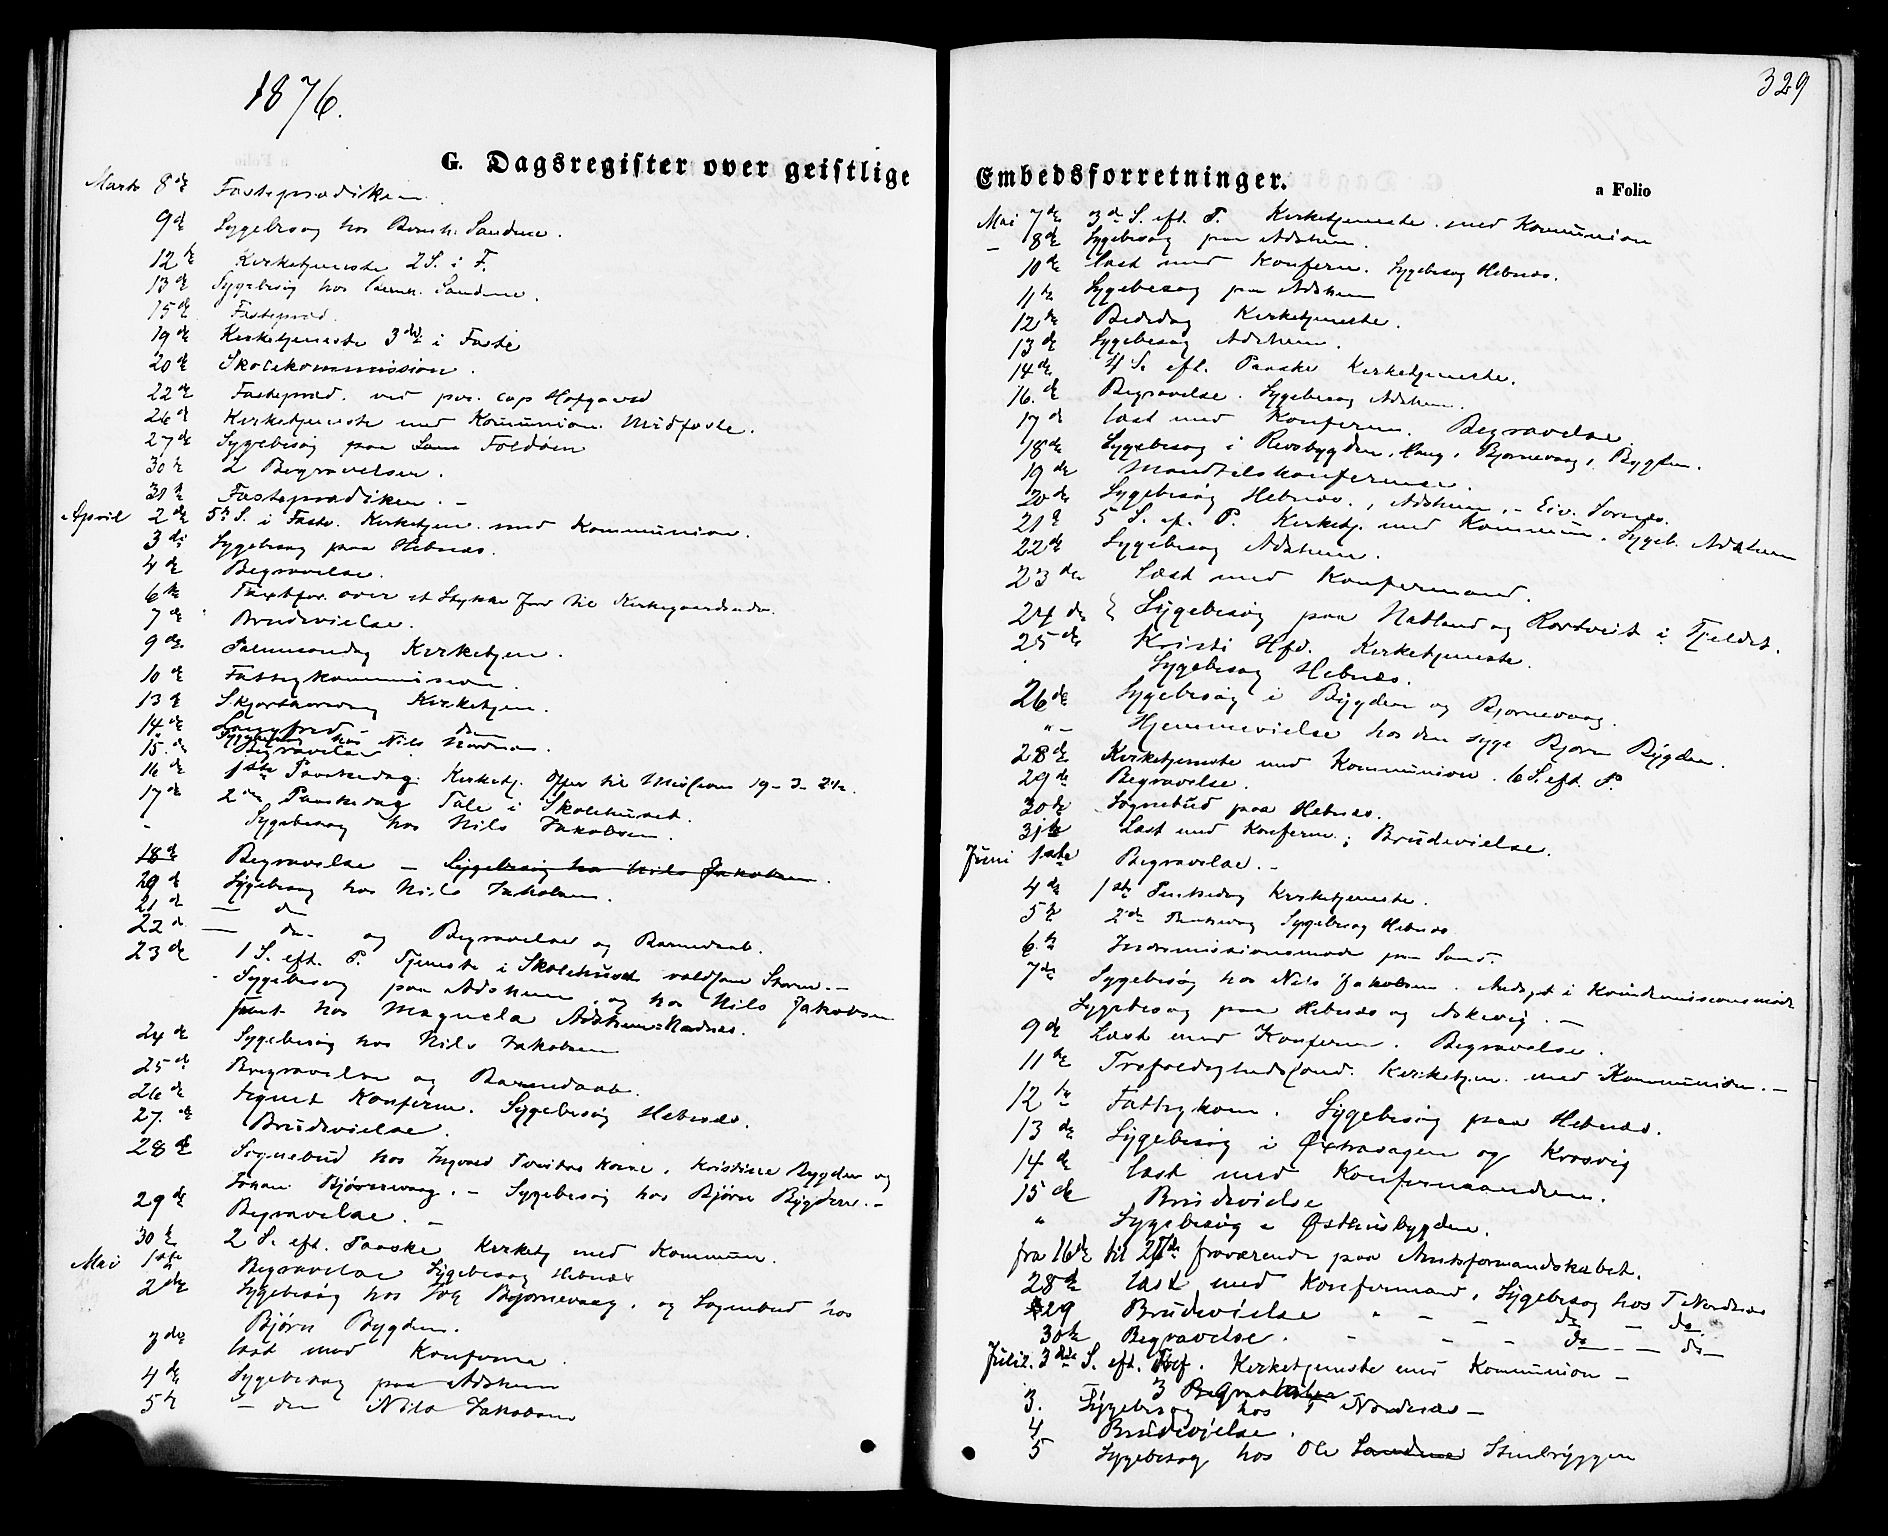 1876.
G. Dagsregister over geistlige
Marts 8de Fasteprædiken.
9de Sygebesøg hos Sandene.
12te Kirketjeneste 2 S. i F.
13de Sygebesøg hos Sandene.
15de Fastepræd.
19de Kirketjeneste 3die i Faste
20de Skolekommission.
22de Fastepræd. ved pers. cap Hofgaard
26de Kirketjeneste med Kommunion. Midfaste.
27de Sygebesøg paa Foldøen
30te 2 Begravelser.
31te Fasteprædiken. –
April 2den 5te S. i Faste. Kirketjen. med Kommunion.
3die Sygebesøg paa Hebnæs.
4de Begravelse.
6te over et Stykke Jord til
7de Brudevielse.
9de Palmesøndag Kirketjen.
10de Fattigkommission.
13de Skjærthorsdag Kirketjen.
14de Langfred. do
" Sygebesøg hos Nils Nordnæs.
15de Begravelse
16de 1ste Paaskedag. Kirketj. Offer til Missionen 19-3-
17de 2den Paaskedag Tale i Skolehuset.
- Sygebesøg hos Nils Jakobsen.
18de Begravelse – Sygebesøg hos Nils Jakobsen.
20de Sygebesøg hos Nils Jakobsen.
21de — do
22de — do og Begravelse og Barnedaab.
23de 1 S. eft. P. Tjeneste i Skolehuset voldsom Storm. –
Sygebesøg paa Adsheim, og hos Nils Jakobsen
samt hos Adsheim=Nordnæs.
24de Sygebesøg hos Nils Jakobsen
25de Begravelse og Barnedaab.
26de Konferm. Sygebesøg Hebnæs.
27de Brudevielse.
28de Sognebud hos Kone, Kristine Bygden og
Johan Bjørnevaag. – Sygebesøg hos Bjørn Bygden. –
29de Begravelse. –
30te 2 S. eft. Paaske Kirketj med Kommun.
Mai 1ste Begravelse Sygebesøg Hebnæs
2den Sygebesøg hos Bjørnevaag, og Sognebud hos
Bjørn Bygden.
3die læst med Konferma.
4de Sygebesøg paa Adsheim
5te – do Nils Jakobsen
329
Embedsforretninger.
a Folio
Mai 7de 3die S. eft. P. Kirketjeneste med Kommunion
– 8de Sygebesøg paa Adsheim.
10de læst med Konferm. Sygebesøg Hebnæs.
11te Sygebesøg paa Adsheim
12te Bededag Kirketjeneste.
13de Sygebesøg Adsheim.
14de 4 S. eft. Paaske Kirketjeneste.
16.de Begravelse. Sygebesøg Adsheim.
17de læst med Konferm. Begravelse.
18de Sygebesøg i Revsbygden, Haug, Bjørnevaag, Bygden.
19de
20de Sygebesøg Hebnæs., Adsheim, – Eiv.
21de 5 S. ef. P. Kirketj. med Kommun. Sygeb. Adsheim
22de Sygebesøg Adsheim.
23de Læst med Konfermand.
24de Sygebesøg paa Natland og i Fjeldet.
25de Kristi Hfd. Kirketjeneste.
Sygebesøg Hebnæs.
26de Sygebesøg i Bygden og Bjørnevaag.
"– Hjemmevielse hos den syge Bjørn Bygden.
28de Kirketjeneste med Kommunion. 6 S. eft. P.
29de Begravelse.
30te Sognebud paa Hebnæs.
31te Læst med Konferm.; Brudevielse.
Juni 1ste Begravelse. –
4de 1ste Pintsedag Kirketjeneste.
5te 2den Pintsedag Sygebesøg Hebnæs
6.te Indremissionsmøde paa Sand.
7de Sygebesøg hos Nils Jakobsen. Andagt i Kvindemissionsmøde
Sygebesøg paa Hebnæs og Askevig. –
9de Læst med Konferm. Begravelse.
11te Trefoldighedssønd. Kirketjen. med Kommunion. –
12te Fattigkom. Sygebesøg paa Hebnæs.
13de Sygebesøg i og Krosvig
14de læst med Konfermanderne.
15de Brudevielse
" Sygebesøg i Østhusbygden.
fra 16de til 27de fraværende paa Amtsformandskabet.
28de læst med Konfermand, Sygebesøg hos T Nordnæs
29 Brudevielse " – – do – do.
30te Begravelse. – – – do – – do –
Juli 2. 3die S. eft. Tref. Kirketjeneste med Kommunion –
3 Begravelser
3. Sygebesøg hos T Nordnæs –
4 Brudevielse.
5 Sygebesøg hos Ole Sandene Stenbryggen